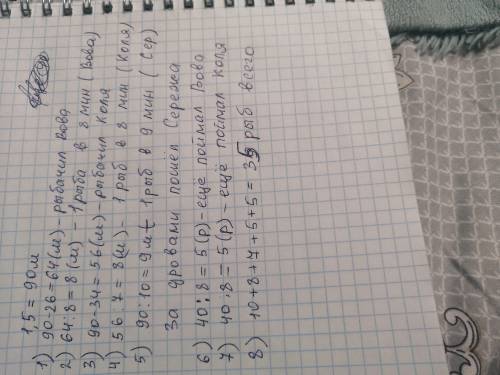 1,5 = 90м
1) 90-26=64(м)-рыбачил Вова
2) 64:8=8(м) - 1рыба в 8 мин (Вова)
3) 90-34=56(м)-рыбачил Коля
4) 56:7=8(м)- 1рыб в 8 мин (Коля)
5) 90:10=9м 1рыб в 9 мин (Сер)
За дровами пошёл Сережа
6) 40:8=5(р)-ещё поймал Вова
7) 40:8=5(р)-ещё поймал Коля
8) 10+8+7+5+5=35 рыб всего